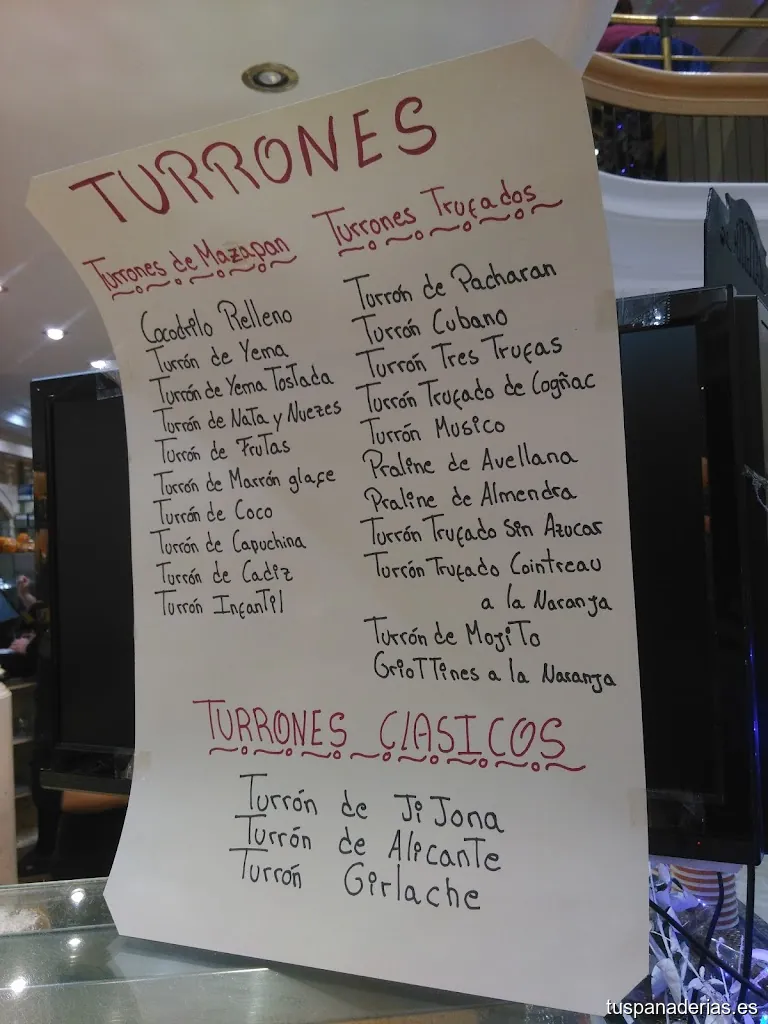 TURRONES
Turrones de Mazapan
Cocodrilo Relleno
Turrón de Yema
Turrón de Yema Tostada
Turrón de Nata y Nuezes
Turrón de Frutas
Turrón de Marrón glaçe
Turrón de Coco
Turrón de Capuchina
Turrón de Cadiz
Turrón Infantil
Turrones Trufados
Turrón de Pacharan
Turrón Cubano
Turrón Tres Trufas
Turrón Trufado de Cogñac
Turrón Musico
Praline de Avellana
Praline de Almendra
Turrón Trufado Sin Azucar
Turrón Trufado Cointreau
a la Naranja
Turrón de Mojito
Griottines a la Naranja
TURRONES CLASICOS
Turrón de JiJona
Turrón de Alicante
Turrón Girlache
tuspanaderias.es